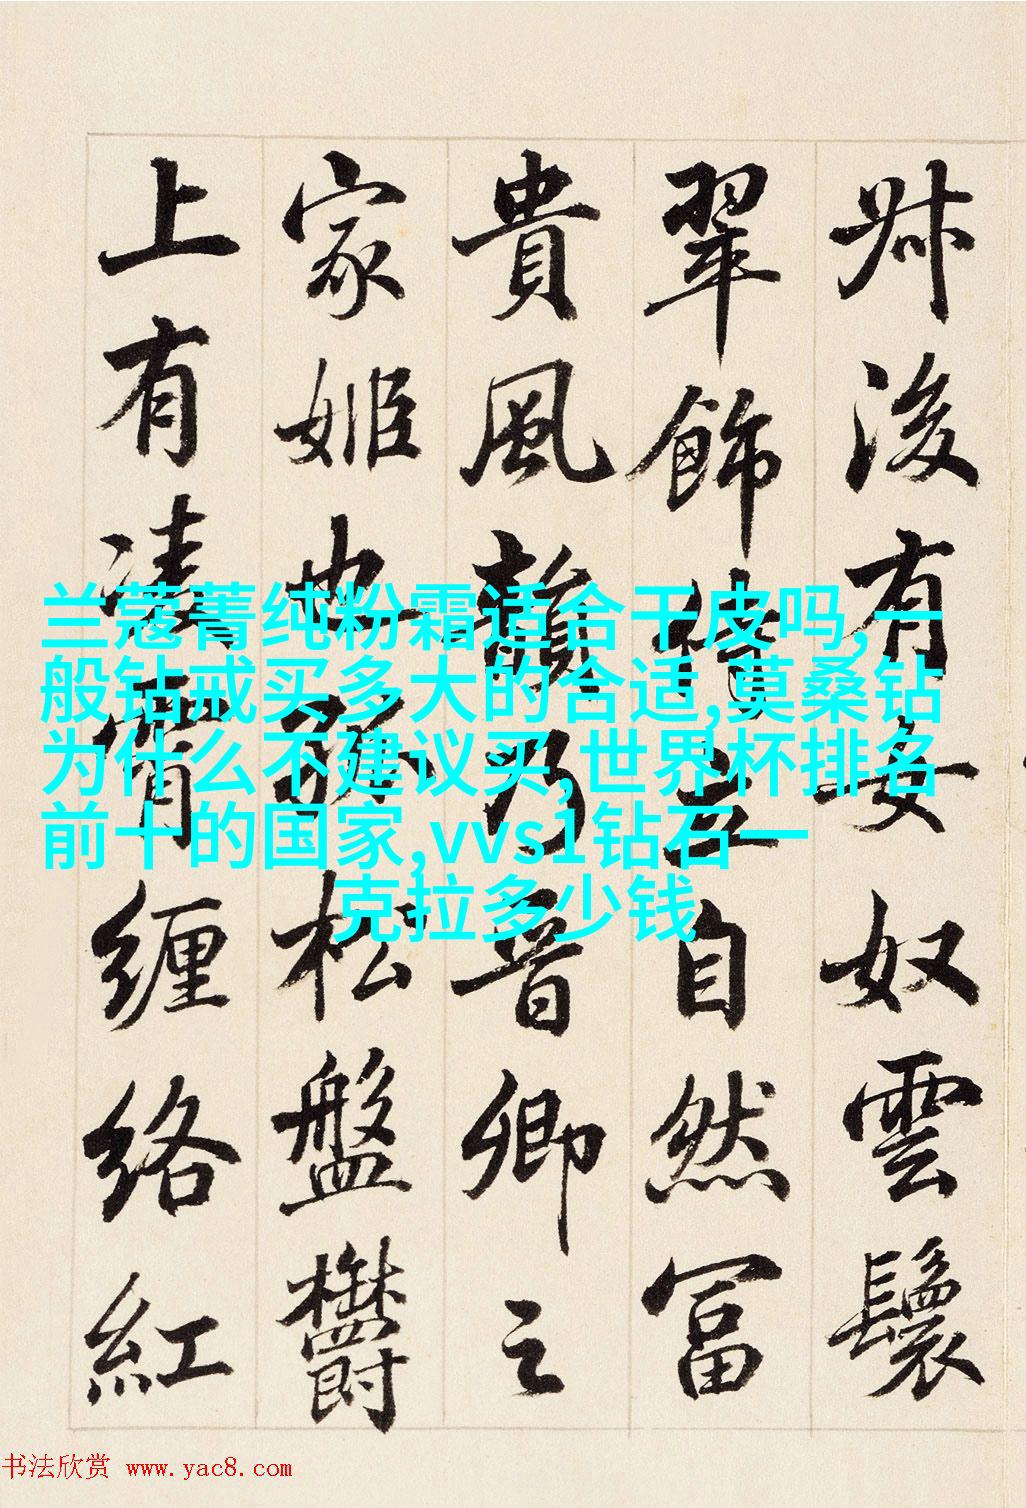 叔後有女奴雲鬟
翠飾侍立自然富
貴風韻乃晉卿之
家姬也孤松盤鬱
上有凌霄纏絡紅
兰蔻菁纯粉霜适合干皮吗,一
般钻戒买多大的合适,莫桑钻
为什么不建议买,世界杯排名
前十的国家,vvs1钻石一
克拉多少钱
书法欣赏 www.yac8.com